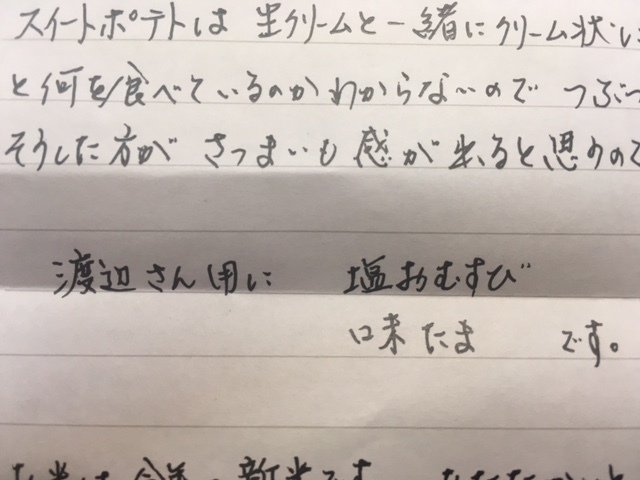 スイートポテトは 生クリームと一緒にクリーム状に
と何を食べているのかわからないので つぶつ
そうした方が さつまいも感が出ると思うので
渡辺さん用に 塩おむすび
味たま です。
お米は今年の新米です